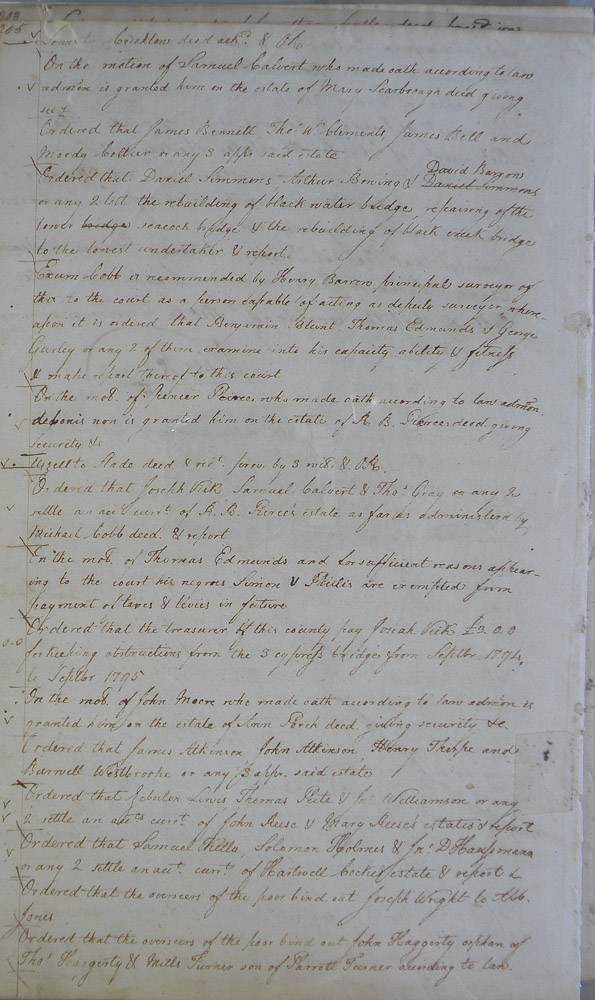 213
205
Crichlow deed ackd. & OR
On the motion of Samuel Calvert who made oath according to law
admōn is granted him on the estate of Mary Scarbrough decd giving
secy
Ordered that James Bennett Thos. W. Clements James Bell and
Moody Cottier or any 3 appr. said estate
David Barrow
Ordered that Daniel Simmons, Arthur Bowing & Daniel Simmons
or any 2 let the rebuilding of black water bridge, repairing of the
lower bridge seacock bridge & the rebuilding of black creek bridge
to the lowest undertaker & report.
Exum Cobb is recommended by Henry Barrow, principal surveyor of
this to the court as a person capable of acting as deputy surveyor where-
upon it is ordered that Benjamin Blunt Thomas Edmunds & George
Gurley or any 2 of them examine into his capacity, ability & fitness
& make report thereof to this court
On the mot. of Spencer Pierce who made oath according to law admōn
debonis non is granted him on the estate of R. B. Pierces decd giving
security &c
to Slade deed & rict. prov. by 3 wits. & OR.
Ordered that Joseph Vick Samuel Calvert & Thos. Gray or any 2
settle an acct. currt. of R. B. Pierces estate as far as administerd by
Michael Cobb decd. & report
On the mot. of Thomas Edmunds and for sufficient reasons appear-
ing to the court his negroes Simon & Phillis are exempted from
payment of taxes & levies in future
Ordered that the treasurer of this county pay Josiah Vick £9.0.0
for keeping obstructions from the 3 cypress bridges from Septbr 1794.
to Septbr 1795
On the mot. of John Moore who made oath according to law admōn is
granted him on the estate of Ann Porch decd. giving security &c
Ordered that James Atkinson John Atkinson Henry Thorpe and
Burwell Westbrooke or any 3 appr. said estate
Ordered that Zebulon Lewis Thomas Pete & Jn. Williamson or any
2 settle an acct. currt. of John Reese & Mary Reese's estates & report
Ordered that Samuel Kello, Solomon Holmes & Jno. D Haussmann
or any 2 settle an acct. currt. of Hartwell Cockes estate & report
Ordered that the overseers of the poor bind out Joseph Wright to
Jones
Ordered that the overseers of the poor bind out John Haggerty orphan of
Thos. Haggerty & Mills Turner son of Parrott Turner according to law.